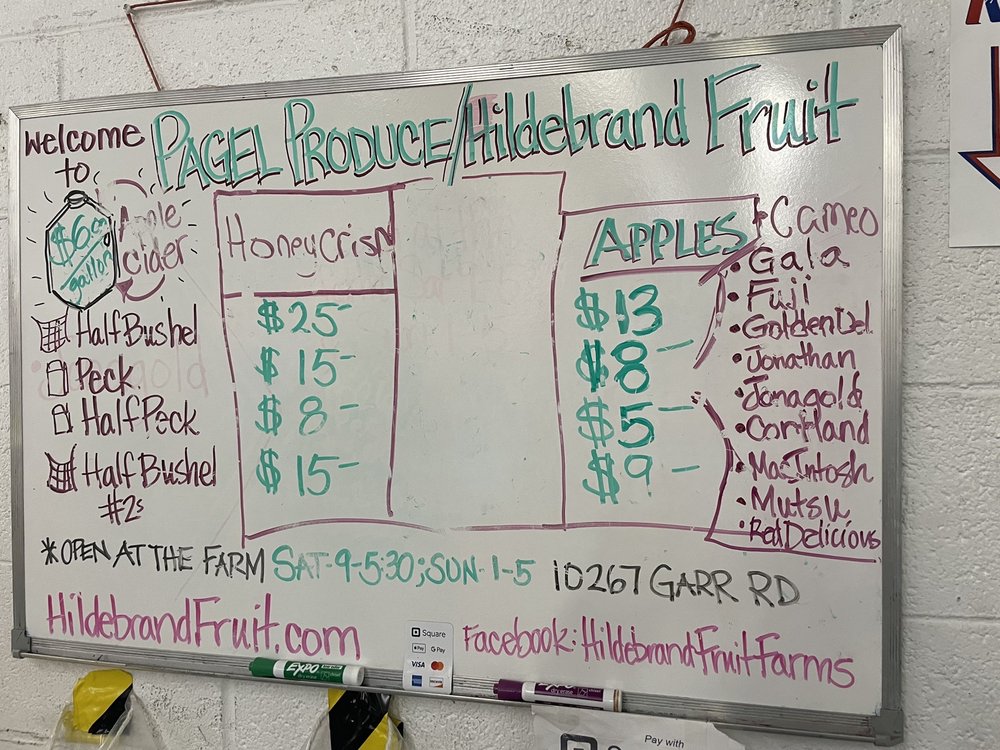 Welcome to
PAGEL PRODUCE/Hildebrand Fruit
$6.00/gallon
Apple Cider
HoneyCrisp
APPLES
Half Bushel $25- $13
Peck $15- $8-
Half Peck $8- $5-
Half Bushel #2s $15- $9-
• Cameo
• Gala
• Fuji
• Golden Del
• Jonathan
• Jonagold
• Cortland
• MacIntosh
• Mutsu
• Red Delicious
*OPEN AT THE FARM SAT-9-5:30; SUN-1-5 10267 GARR RD
HildebrandFruit.com
Facebook: HildebrandFruitFarms
Square
Pay G Pay
VISA
EXPO
dry erase
EXPO
dry erase
Pay with